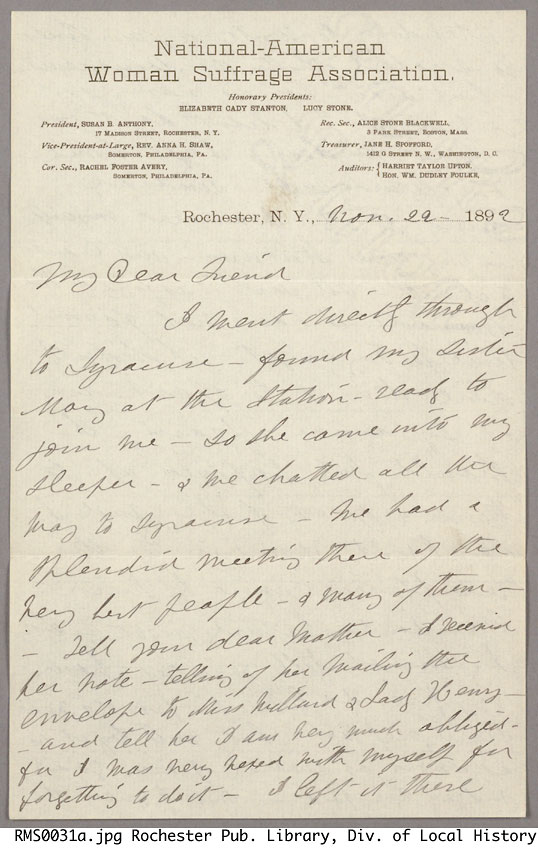 National-American
Woman Suffrage Association.
Honorary Presidents:
ELIZABETH CADY STANTON, LUCY STONE.
President, SUSAN B. ANTHONY,
17 MADISON STREET, ROCHESTER, N. Y.
Vice-President-at-Large, REV. ANNA H. SHAW,
SOMERTON, PHILADELPHIA, PA.
Cor. Sec., RACHEL FOSTER AVERY,
SOMERTON, PHILADELPHIA, PA.
Rec. Sec., ALICE STONE BLACKWELL,
3 PARK STREET, BOSTON, MASS.
Treasurer, JANE H. SPOFFORD,
1412 G STREET N. W., WASHINGTON, D. C.
Auditors: { HARRIET TAYLOR UPTON.
HON. WM. DUDLEY FOULKE,
Rochester, N. Y., Nov. 22 - 1892
My Dear Friend
I went directly through
to Syracuse - found my sister
Mary at the Station - ready to
join me - so she came into my
sleeper - & we chatted all the
way to Syracuse - We had a
splendid meeting there of the
very best people - & many of them -
- Tell your dear Mother - I received
her note - telling of her mailing the
envelope to Miss Willard & Lady Henry -
- and tell her I am very much obliged -
for I was very vexed with myself for
forgetting to do it - I left it there
RMS0031a.jpg Rochester Pub. Library, Div. of Local History